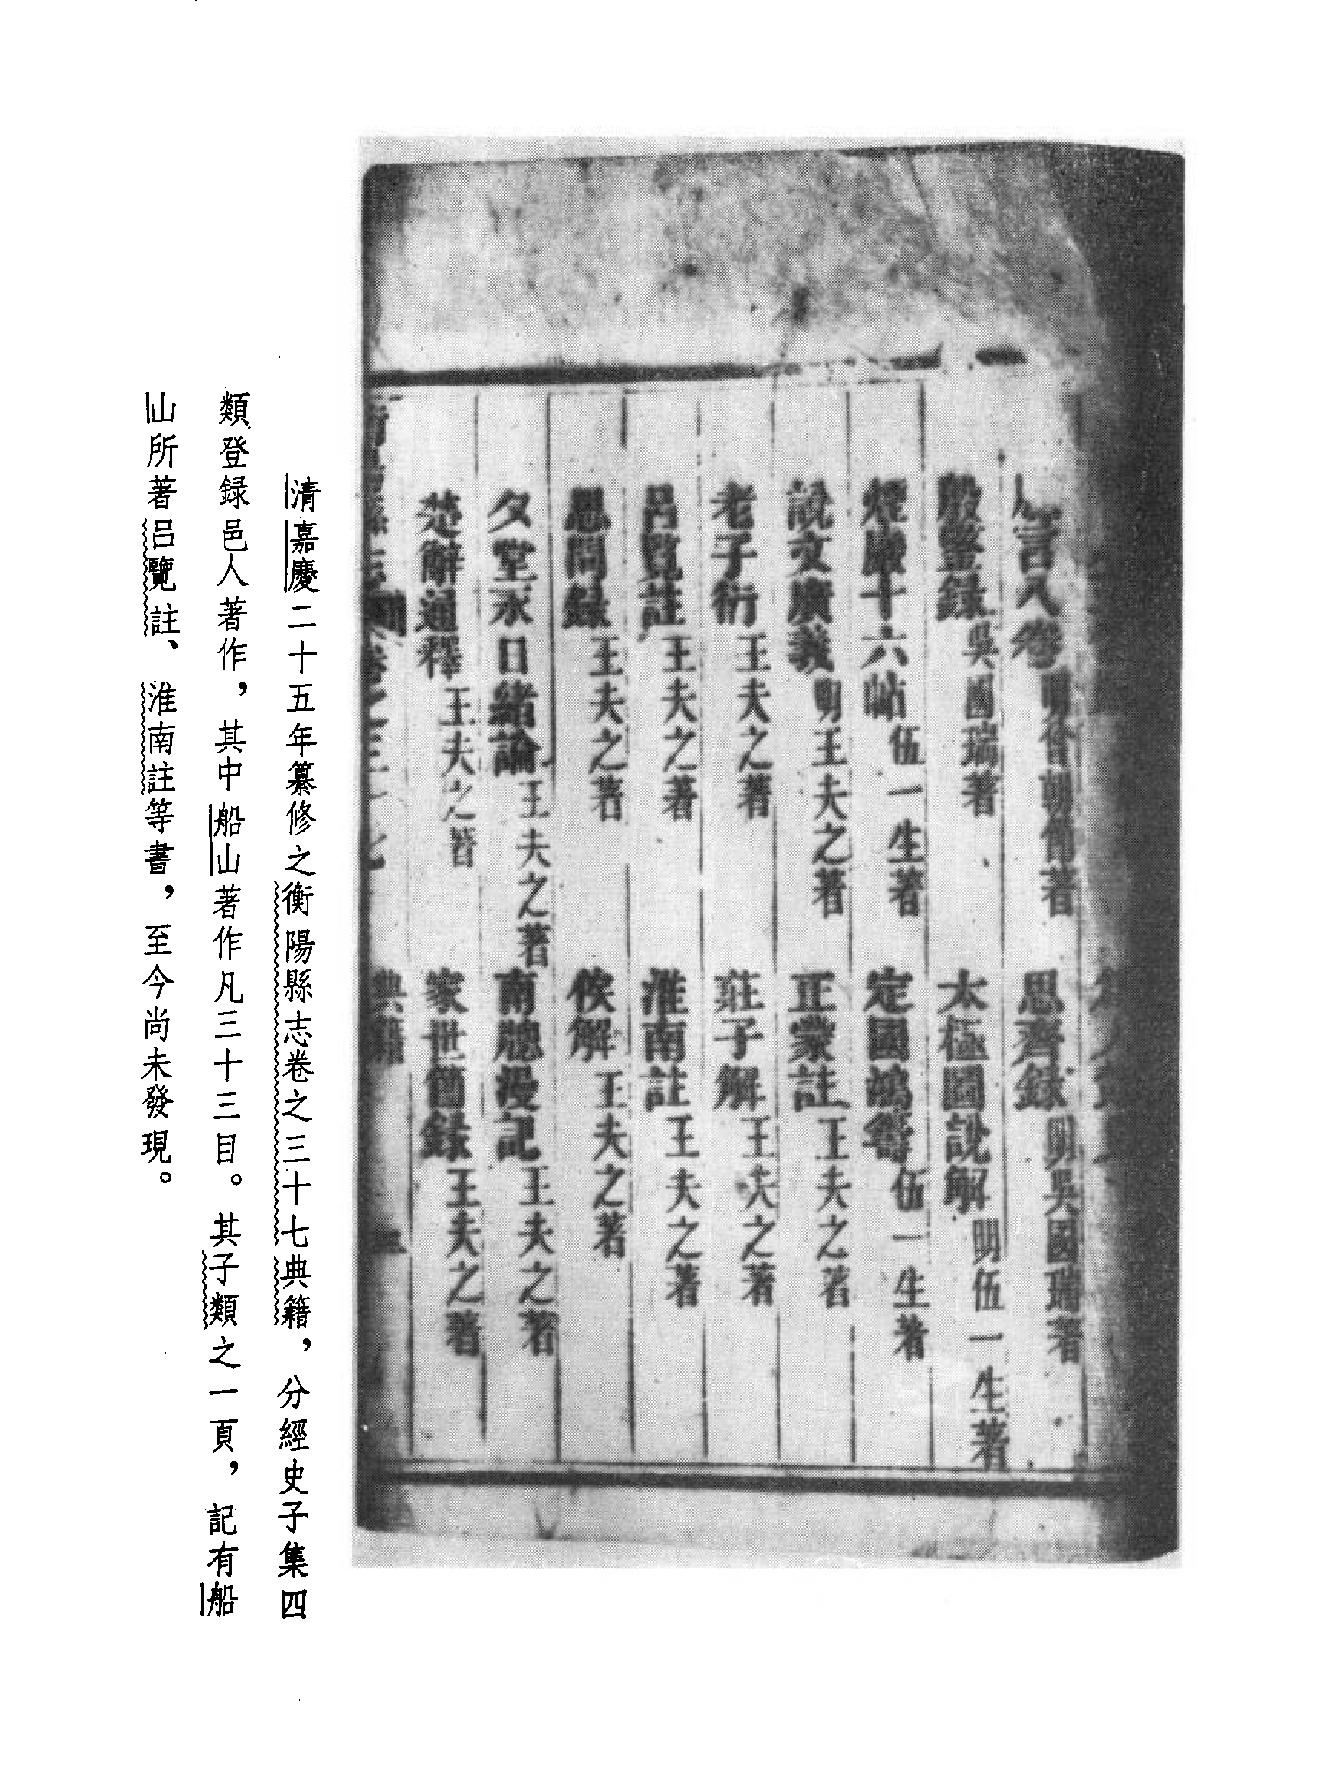 言八卷 明 著 思齊錄 明吳國瑞著
殷鑒錄 吳國瑞著 太極圖說解 明伍一生著
煙巖十六帖 伍一生著 定國鴻籌 伍一生著
說文廣義 明王夫之著 正蒙註 王夫之著
老子衍 王夫之著 莊子解 王夫之著
呂覽註 王夫之著 淮南註 王夫之著
思問錄 王夫之著 俟解 王夫之著
夕堂永日緒論 王夫之著 南牕漫記 王夫之著
楚辭通釋 王夫之著 家世節錄 王夫之著
卷之三十七 典籍
清嘉慶二十五年纂修之衡陽縣志卷之三十七典籍，分經史子集四
類登録邑人著作，其中船山著作凡三十三目。其子類之一頁，記有船
山所著呂覽註、淮南註等書，至今尚未發現。